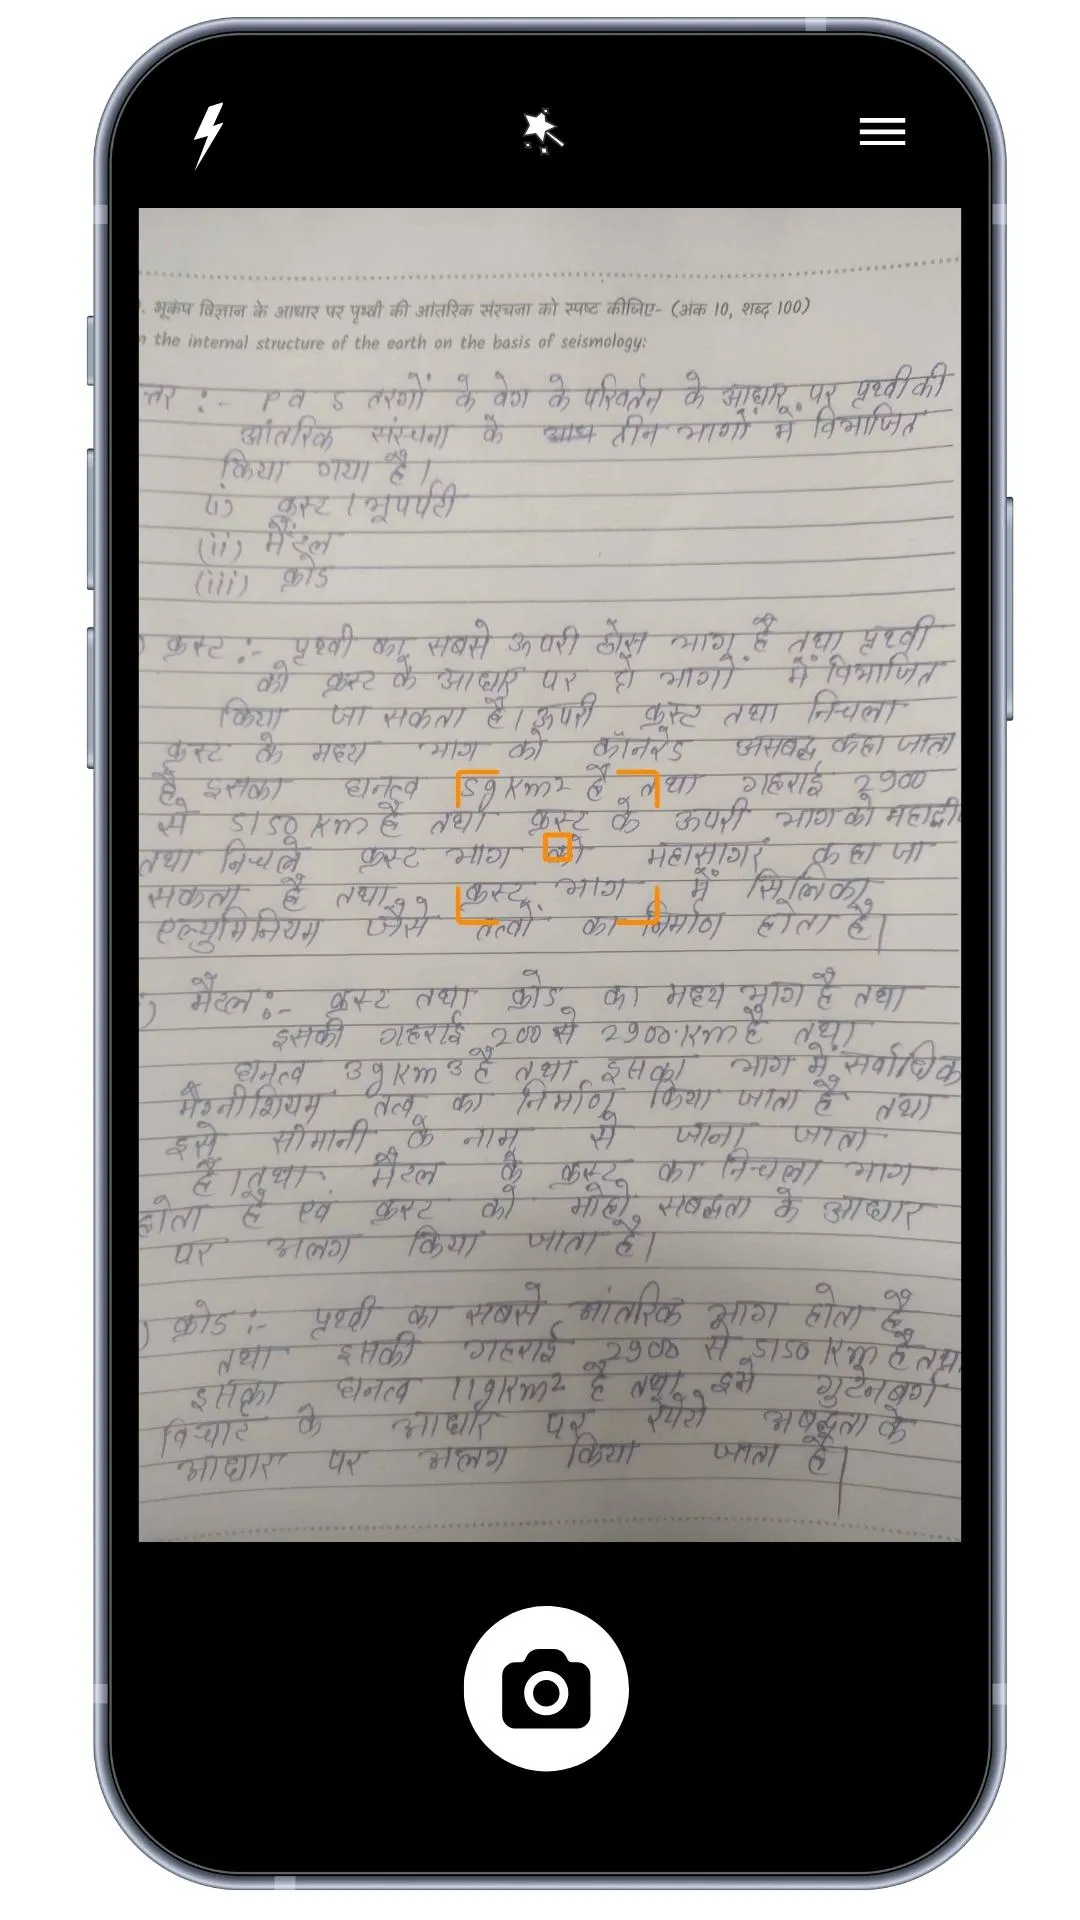 . भूकंप विज्ञान के आधार पर पृथ्वी की आंतरिक संरचना को स्पष्ट कीजिए- (अंक 10, शब्द 100)
the internal structure of the earth on the basis of seismology:
त्तर :- P व S तरगों के वेग के परिवर्तन के आधार पर पृथ्वी की
आंतरिक संरचना के तीन भागों में विभाजित
किया गया है।
(i) क्रस्ट / भूपर्पटी
(ii) मैंटल
(iii) क्रोड
) क्रस्ट :- पृथ्वी का सबसे ऊपरी ठोस भाग है तथा पृथ्वी
को क्रस्ट के आधार पर दो भागों में विभाजित
किया जा सकता है। ऊपरी क्रस्ट तथा निचला
क्रस्ट के मध्य भाग को कॉनरेड असंबद्ध कहा जाता
है इसका घनत्व 5gKm2 है तथा गहराई 2900
से 5150 Km है तथा क्रस्ट के ऊपरी भाग को महाद्वी
तथा निचले क्रस्ट भाग को महासागर कहा जा
सकता है तथा क्रस्ट भाग में सिलिका
एल्युमिनियम जैसे तत्वों का निर्माण होता है।
) मैंटल :- क्रस्ट तथा क्रोड का मध्य भाग है तथा
इसकी गहराई 200 से 2900 Km है तथा
घनत्व 3gKm3 है तथा इसका भाग में सर्वाधिक
मैग्नीशियम तत्व का निर्माण किया जाता है तथा
इसे सीमानी के नाम से जाना जाता
है। तथा मैंटल के क्रस्ट का निचला भाग
होता है एवं क्रस्ट को मोहो सबद्धता के आधार
पर अलग किया जाता है।
) क्रोड :- पृथ्वी का सबसे आंतरिक भाग होता है
तथा इसकी गहराई 2900 से 5150 Km है तथा
इसका घनत्व 11gKm2 है तथा इसे गुटेनबर्ग
विचार के आधार पर रेपेटी अबद्धता के
आधार पर अलग किया जाता है।